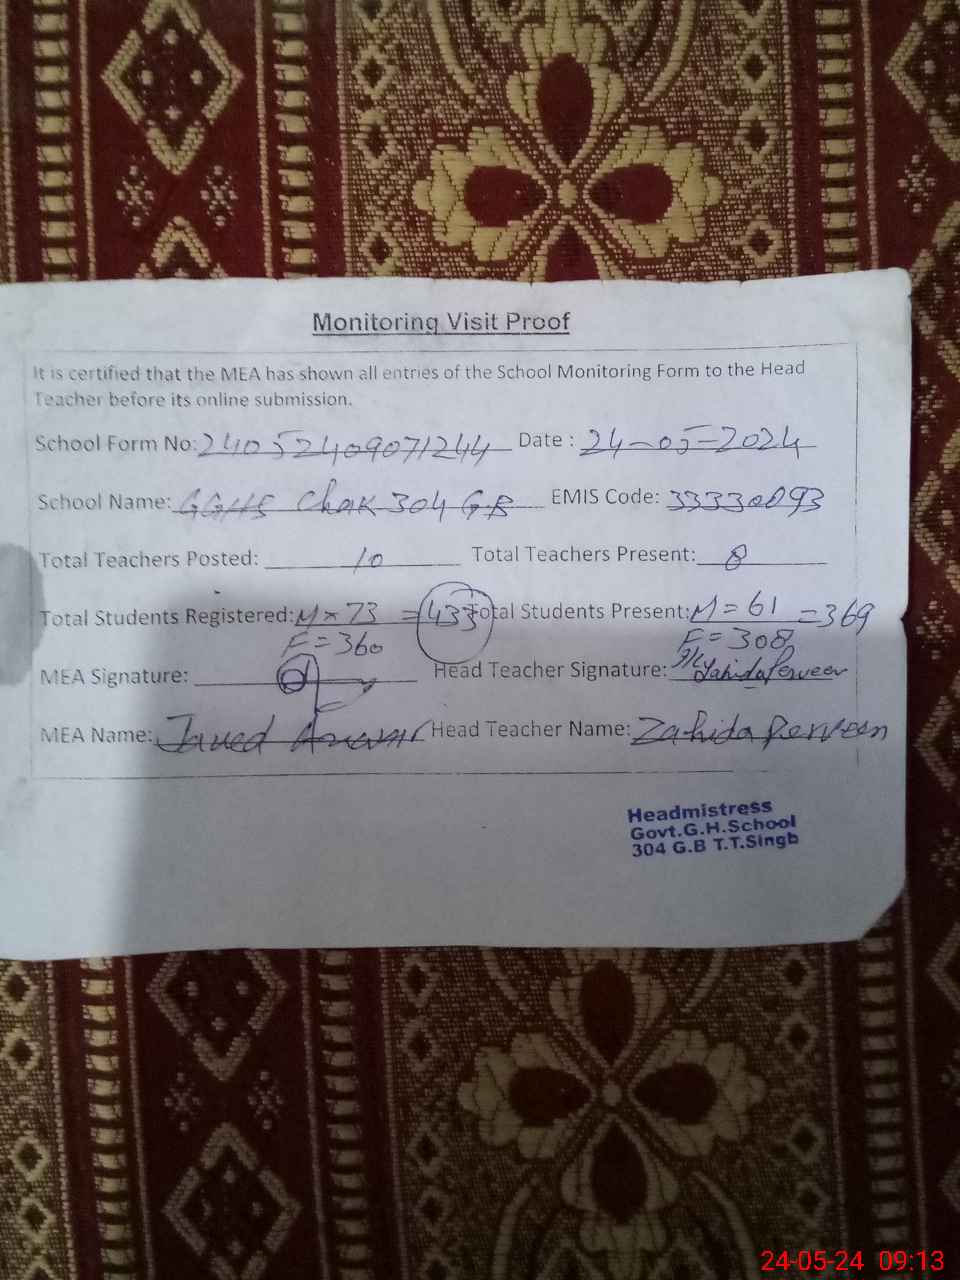 Monitoring Visit Proof
It is certified that the MEA has shown all entries of the School Monitoring Form to the Head
Teacher before its online submission.
School Form No: 24052409071244 Date : 24-05-2024
School Name: GGHS Chak 304 GB EMIS Code: 33330093
Total Teachers Posted: 10 Total Teachers Present: 8
Total Students Registered: M = 73 = 433 Total Students Present: M = 61 = 369
F = 360 F = 308
MEA Signature: Head Teacher Signature: Zahida Perveen
MEA Name: Javed Anwar Head Teacher Name: Zahida Perveen
Headmistress
Govt.G.H.School
304 G.B T.T.Singh
24-05-24 09:13